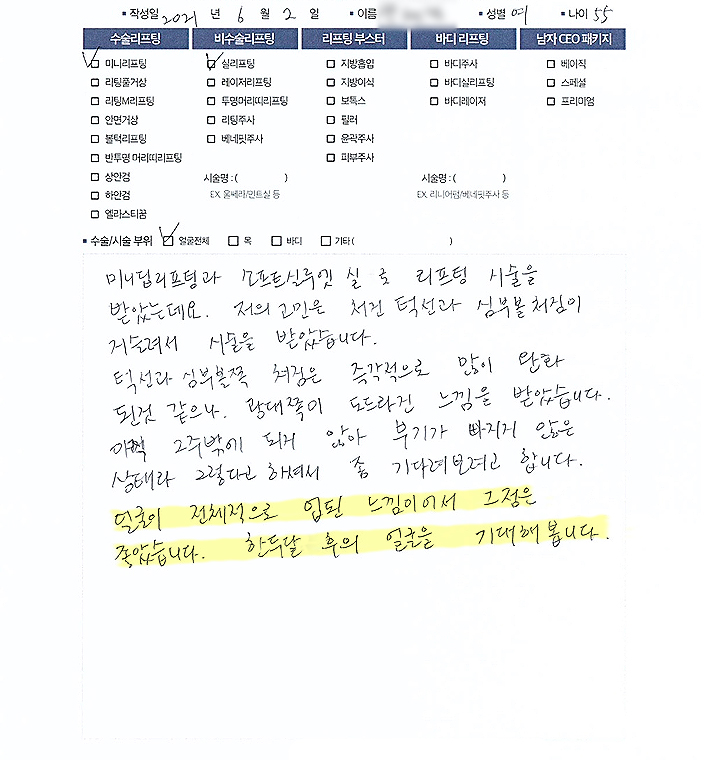 ▪ 작성일 2021 년 6 월 2 일 ▪ 이름 ▪ 성별 여 ▪ 나이 55
수술리프팅 비수술리프팅 리프팅 부스터 바디 리프팅 남자 CEO 패키지
미니리프팅 실리프팅 지방흡입 바디주사 베이직
리팅풀거상 레이저리프팅 지방이식 바디실리프팅 스페셜
리팅M리프팅 투명머리띠리프팅 보톡스 바디레이저 프리미엄
안면거상 리팅주사 필러
볼턱리프팅 베네핏주사 윤곽주사
반투명 머리띠리프팅 피부주사
상안검 시술명 : ( ) 시술명 : ( )
하안검 EX. 울쎄라/민트실 등 EX. 리니어펌/베네핏주사 등
엘라스티꿈
▪ 수술/시술 부위 얼굴전체 목 바디 기타 ( )
미니딥리프팅과 소프트실루엣 실 로 리프팅 시술을
받았는데요. 저의 고민은 처진 턱선과 심부볼처짐이
거슬려서 시술을 받았습니다.
턱선과 심부볼쪽 처짐은 즉각적으로 많이 완화
된것 같으나. 광대쪽이 도드라진 느낌을 받았습니다.
아직 2주밖에 되지 않아 부기가 빠지지 않은
상태라 그렇다고 하셔서 좀 기다려보려고 합니다.
얼굴이 전체적으로 업된 느낌이어서 그점은
좋았습니다. 한두달 후의 얼굴을 기대해 봅니다.